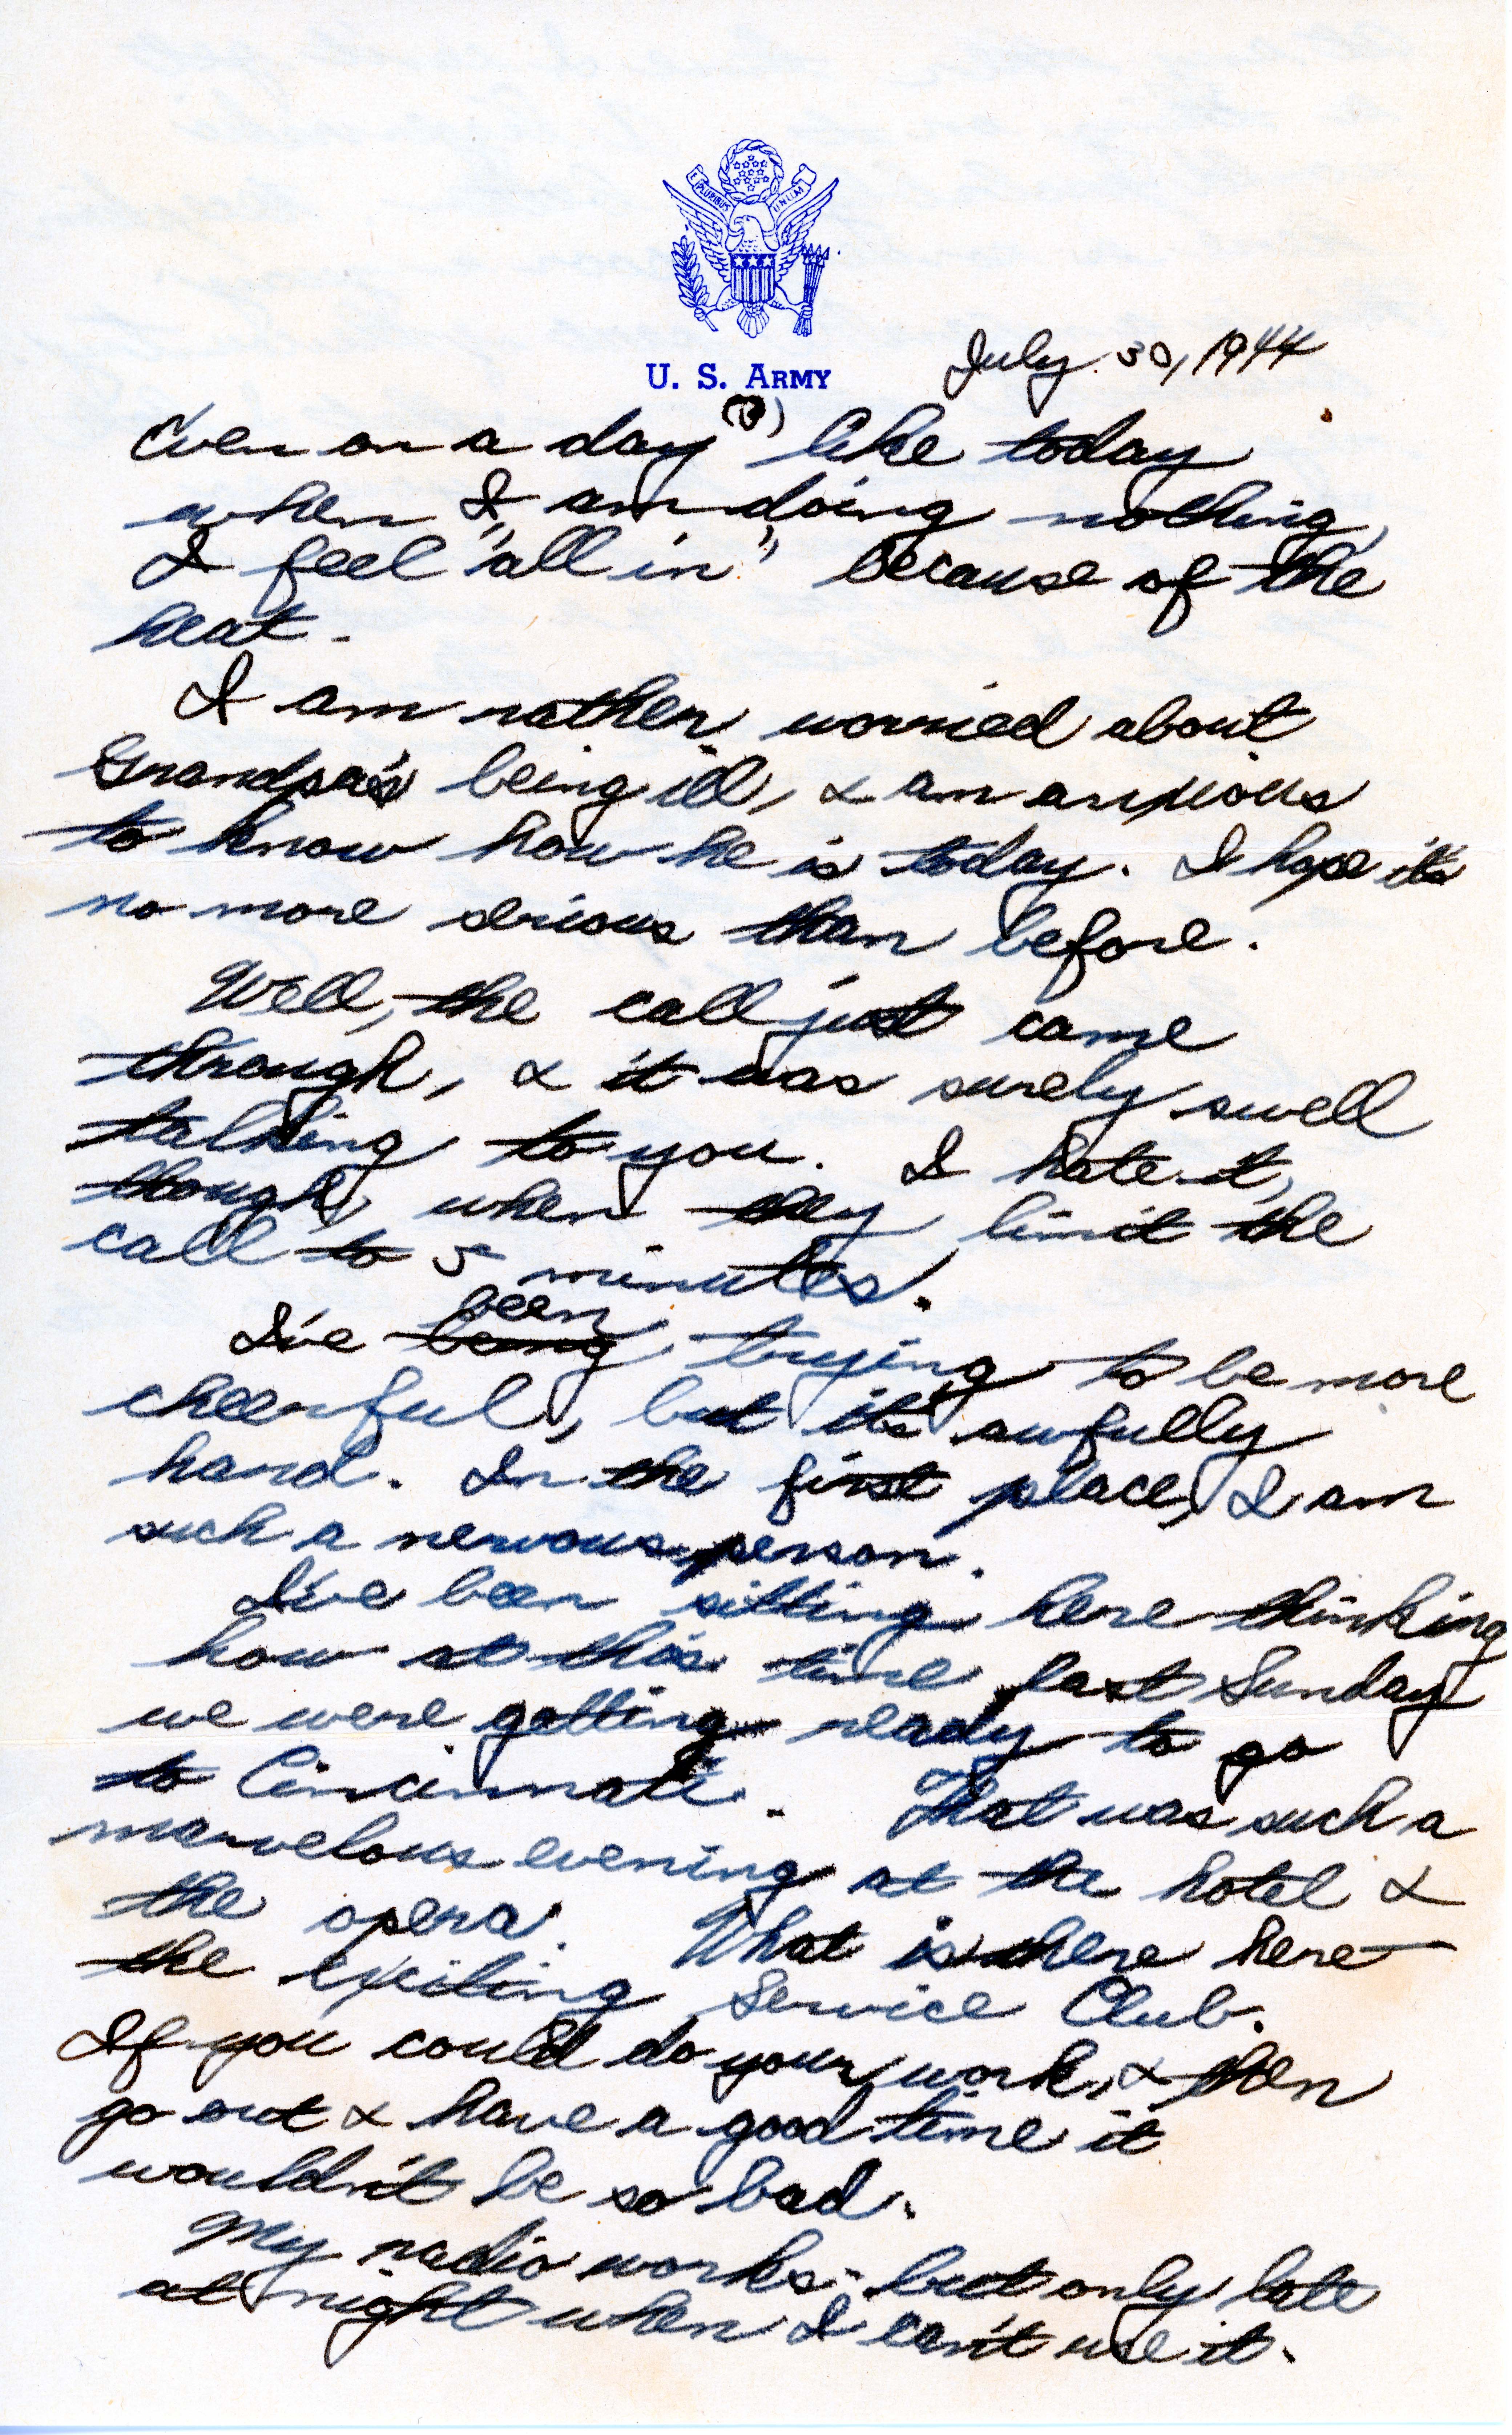 E PLURIBUS UNUM
U. S. ARMY
July 30, 1944
Even on a day like today
when I am doing nothing,
I feel "all in" because of the
heat.
I am rather worried about
Grandpa's being ill, & am anxious
to know how he is today. I hope it's
no more serious than before.
Well, the call just came
through, & it was surely swell
talking to you. I hate it,
though, when they limit the
call to 5 minutes.
been
I've being trying to be more
cheerful, but it's awfully
hard. In the first place, I am
such a nervous person.
I've been sitting here thinking
how at this time last Sunday
we were getting ready to go
to Cincinnati. That was such a
marvelous evening at the hotel &
the opera. What is there here—
the exciting Service Club.
If you could do your work, & then
go out & have a good time it
wouldn't be so bad.
My radio works - but only late
at night when I can't use it.